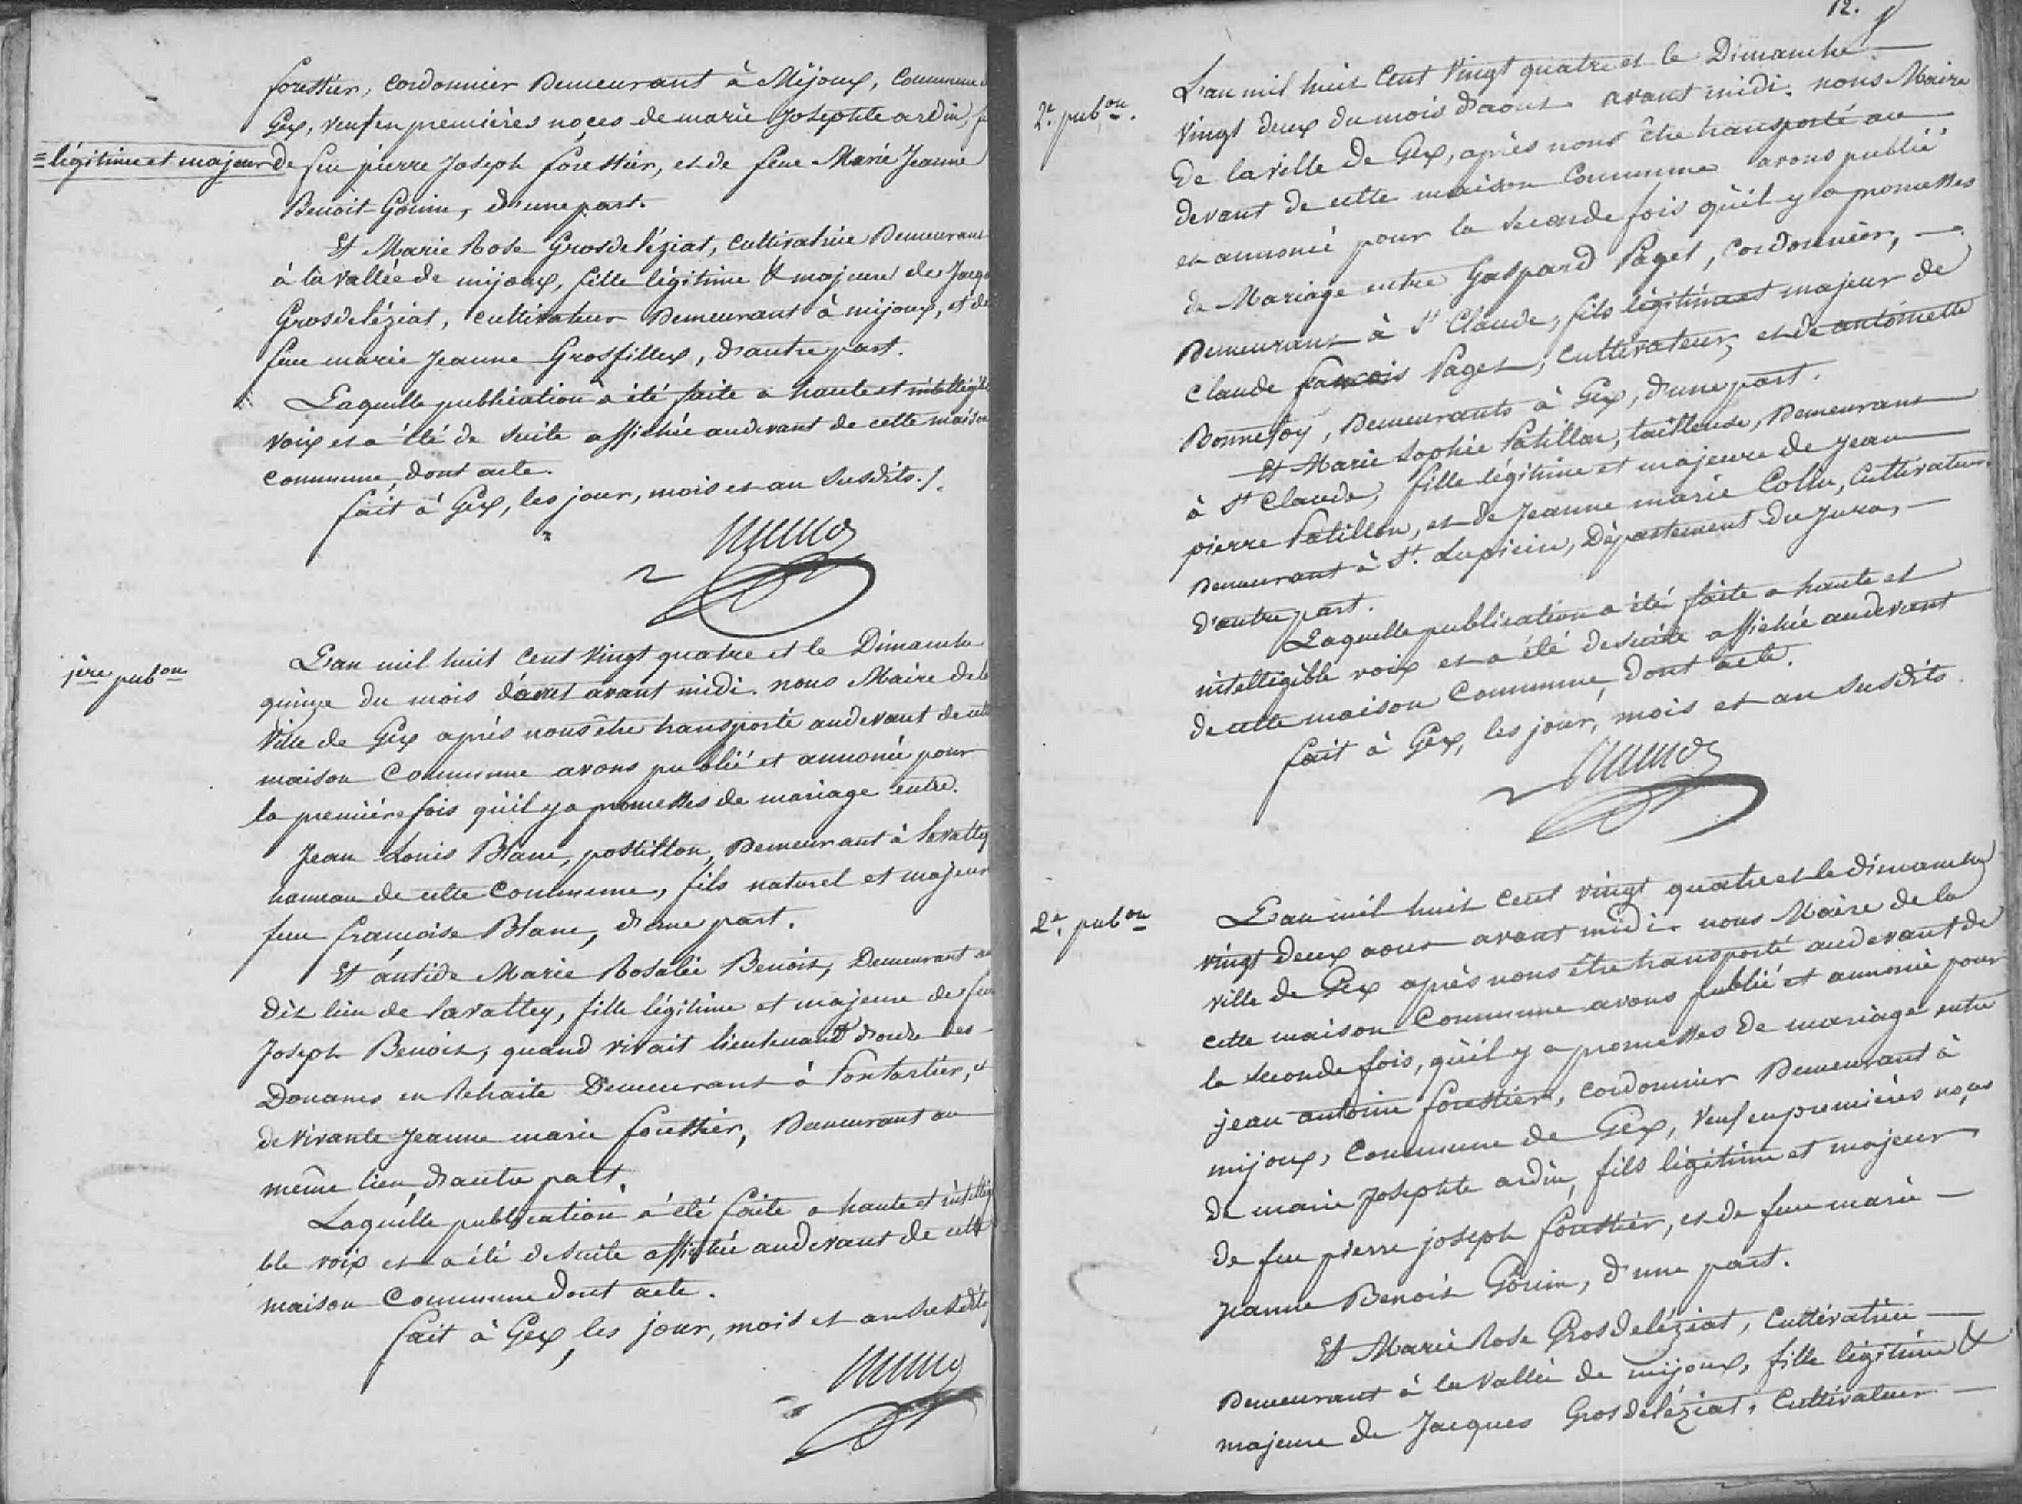 forestier, cordonnier Demeurant à Mijoux, Commune
Gex, veuf en premières noces de marie Josephte ardin, f
=légitime et majeur de feu pierre Joseph forestier, et de feue Marie Jeanne
Benoit Gouin, d'une part.
Et Marie Rose Grosdeléziat, cultivatrice Demeurant
à la vallée de mijoux, fille légitime & majeure de Jacq
Grosdeléziat, cultivateur Demeurant à mijoux, et de
feue marie Jeanne Grosfillex, d'autre part.
Laquelle publication a été faite a haute et intelligible
voix et a été de suite affichée audevant de cette maison
commune, dont acte.
fait à Gex, les jour, mois et an susdits./.
1ère pubon
L'an mil huit cent vingt quatre et le Dimanche
quinze du mois d'aout avant midi. nous Maire de la
Ville de Gex après nous être transporté audevant de cette
maison Commune avons publié et annoncé pour
la première fois qu'il y a promesses de mariage entre.
Jean Louis Blanc, postillon, Demeurant à Lavattay
hameau de cette Commune, fils naturel et majeur
feue françoise Blanc, d'une part.
Et antide Marie Rosalie Benoit, Demeurant au
dit lieu de Lavattey, fille légitime et majeure de feu
Joseph Benoit, quand vivait lieutenant d'ordre des
Douanes en Retraite Demeurant à Pontarlier, et
de vivante Jeanne marie forestier, Demeurant au
même lieu, d'autre patt.
Laquelle publication a été faite a haute et intelligi
ble voix et a été de suite affichée audevant de cette
maison Commune dont acte.
fait à Gex, les jour, mois et an susdits
12.
2e. pubon.
L'an mil huit Cent vingt quatre et le Dimanche
vingt deux du mois d'aout avant midi. nous Maire
de la ville de Gex, après nous être transporté au
devant de cette maison Commune avons publié
et annoncé pour la seconde fois qu'il y a promesses
de Mariage entre Gaspard Paget, cordonnier,
Demeurant à St Claude, fils légitime et majeur de
Claude françois Paget, cultivateur, et de antoinette
Bonnefoy, Demeurants à Gex, d'une part.
Et Marie Sophie Patillon, tailleuse, Demeurant
à St Claude, fille légitime et majeure de Jean
pierre Patillon, et de Jeanne marie Collin, Cultivateur
Demeurant à St. Lupicin, Département du Jura,
d'autre part.
Laquelle publication a été faite a haute et
intelligible voix et a été de suite affichée audevant
de cette maison Commune, dont acte.
fait à Gex, les jour, mois et an susdits.
2e. pubon
L'an mil huit cent vingt quatre et le dimanche
vingt deux aout avant midi. nous Maire de la
ville de Gex après nous être transporté audevant de
cette maison Commune avons publié et annoncé pour
la seconde fois, qu'il y a promesses de mariage entre
jean antoine forestier, cordonnier Demeurant à
mijoux, Commune de Gex, veuf en premières noces
de marie Josephte ardin, fils légitime et majeur
de feu pierre joseph forestier, et de feue marie
Jeanne Benoit Gouin, d'une part.
Et Marie Rose Grosdeléziat, Cultivatrice
Demeurant à la vallée de mijoux, fille légitime &
majeure de Jacques Grosdeléziat, Cultivateur